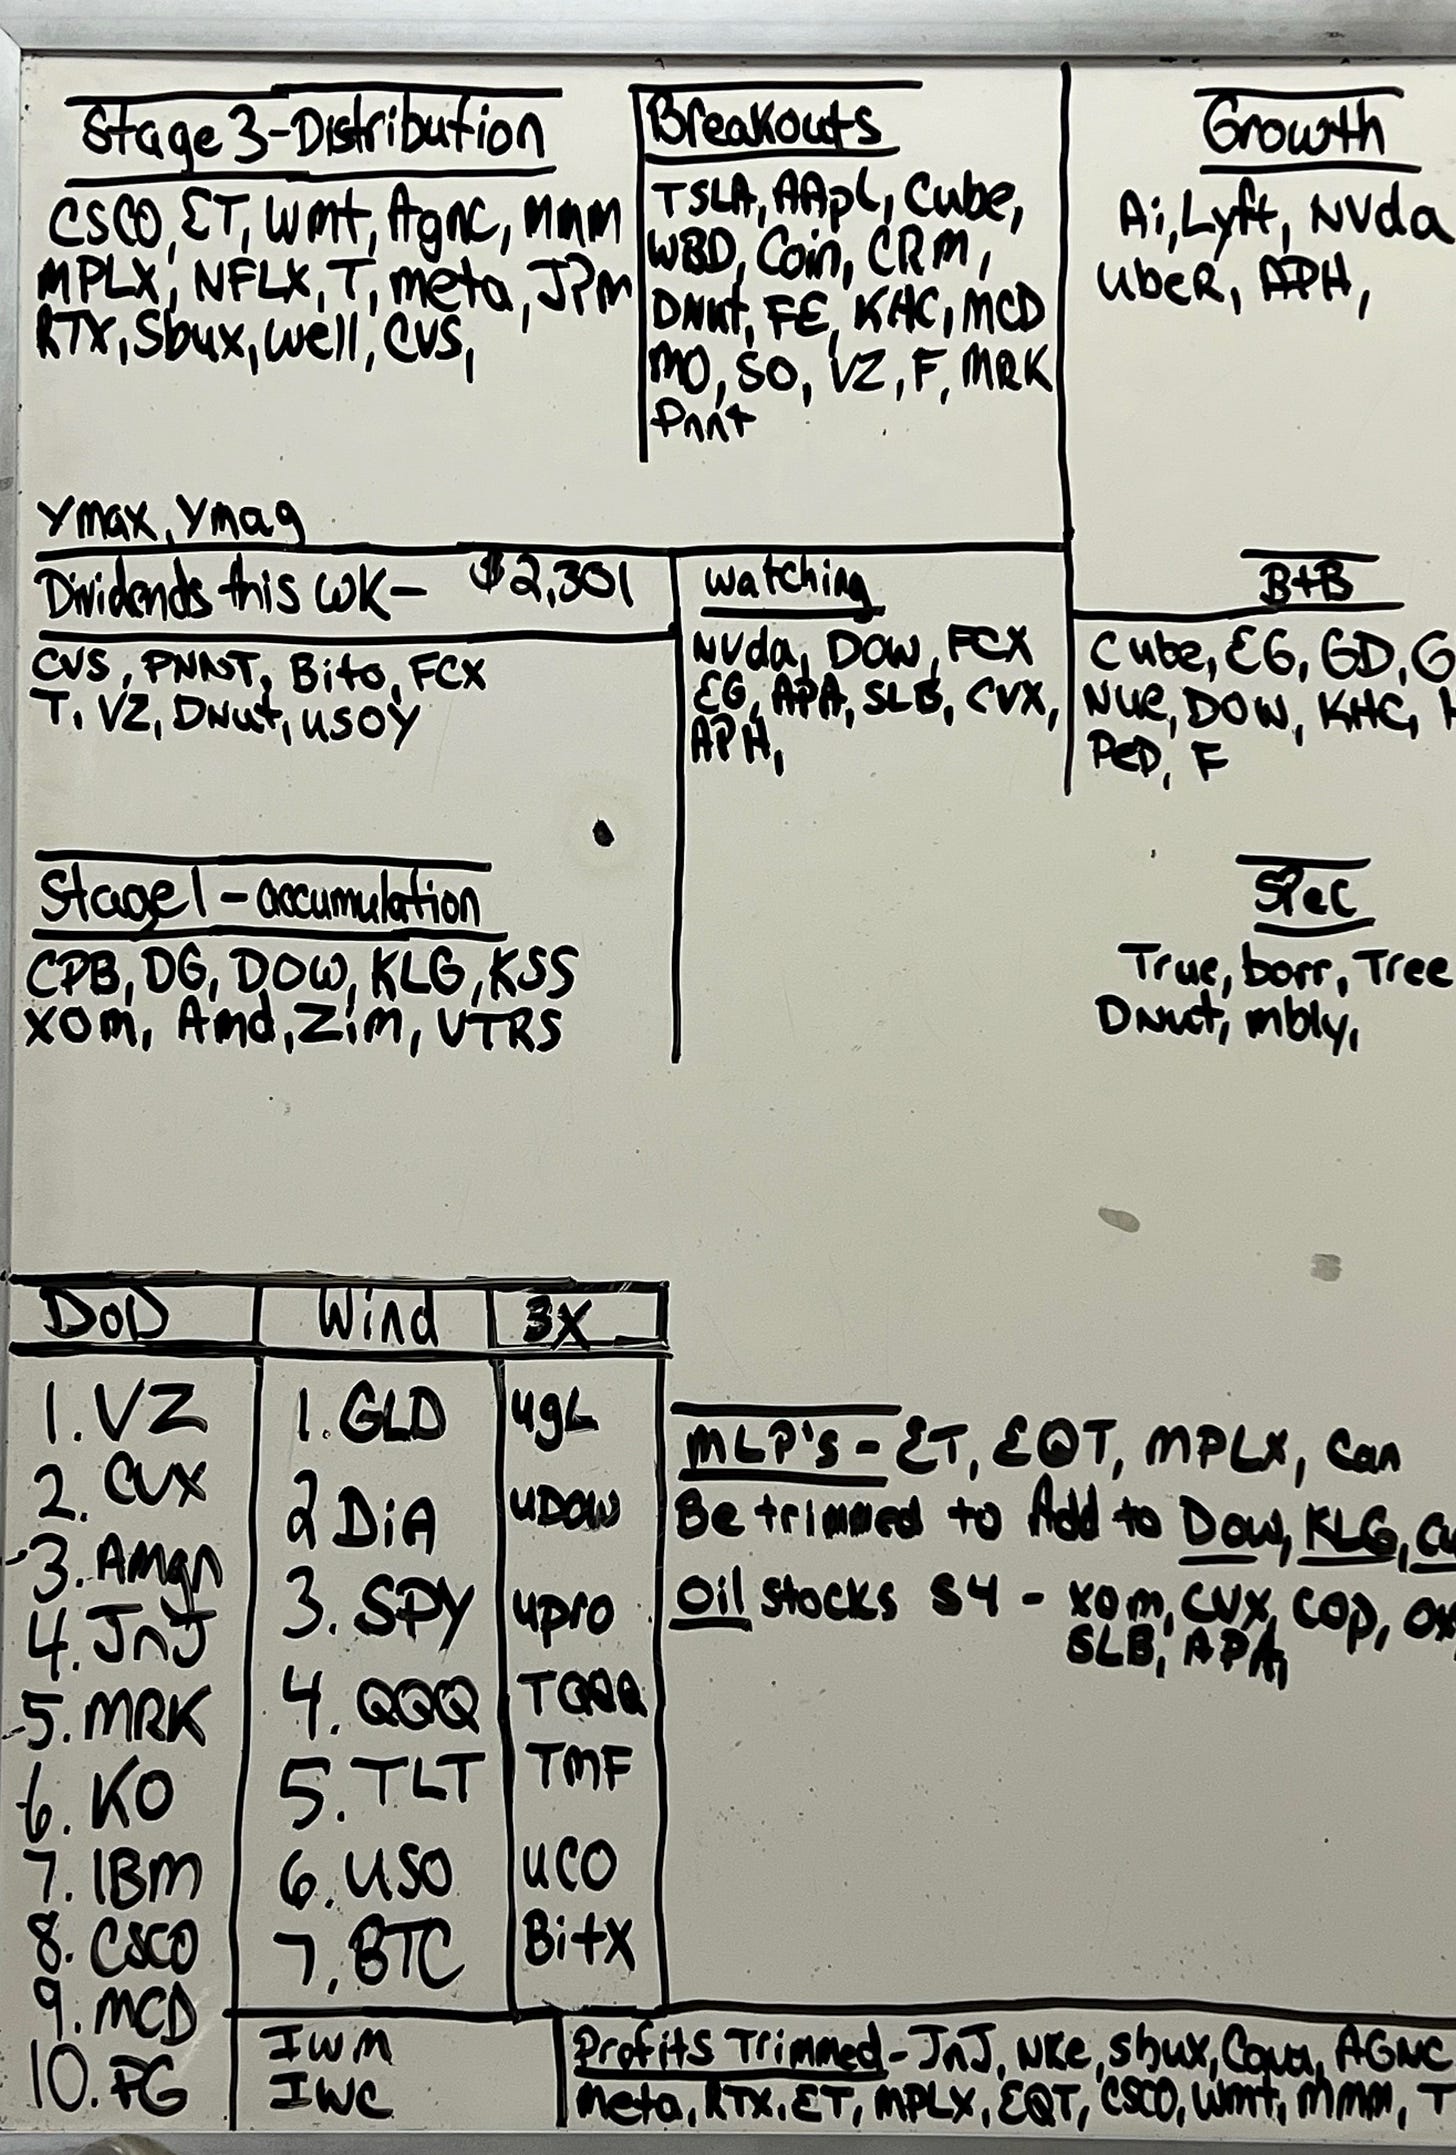 Stage 3-Distribution
CSCO, ET, Wmt, Agnc, mmm
MPLX, NFLX, T, meta, JPM
RTX, Sbux, well, CVS,
Ymax, Ymag
Breakouts
TSLA, AApL, Cube,
WBD, Coin, CRM,
DNut, FE, KHC, MCD
MO, SO, VZ, F, MRK
Pnnt
Growth
Ai, Lyft, NVda
UbeR, APH,
Dividends this WK- $2,301
CVS, PNNT, Bito, FCX
T, VZ, DNut, USOY
watching
NVda, DOW, FCX
EG, APA, SLB, CVX,
APH,
B+B
Cube, EG, GD, G
Nue, DOW, KHC,
PeD, F
Stage 1 - accumulation
CPB, DG, DOW, KLG, KSS
XOm, Amd, Zim, VTRS
SPeC
True, borr, Tree
DNut, mbly,
DoD Wind 3X
1. VZ 1. GLD UgL
2. CVX 2 DiA UDOW
3. Amgn 3. SPY Upro
4. JnJ 4. QQQ TQQQ
5. MRK 5. TLT TMF
6. KO 6. USO UCO
7. IBM 7. BTC BitX
8. CSCO
9. MCD
10. PG
IWM
IWC
MLP's - ET, EQT, MPLX, Can
Be trimmed to Add to Dow, KLG,
Oil stocks S4 - XOm, CVX, COP,
SLB, APA,
Profits Trimmed - JnJ, NKe, Sbux, AGNC
Meta, RTX, ET, MPLX, EQT, CSCO, Wmt, mmm, T